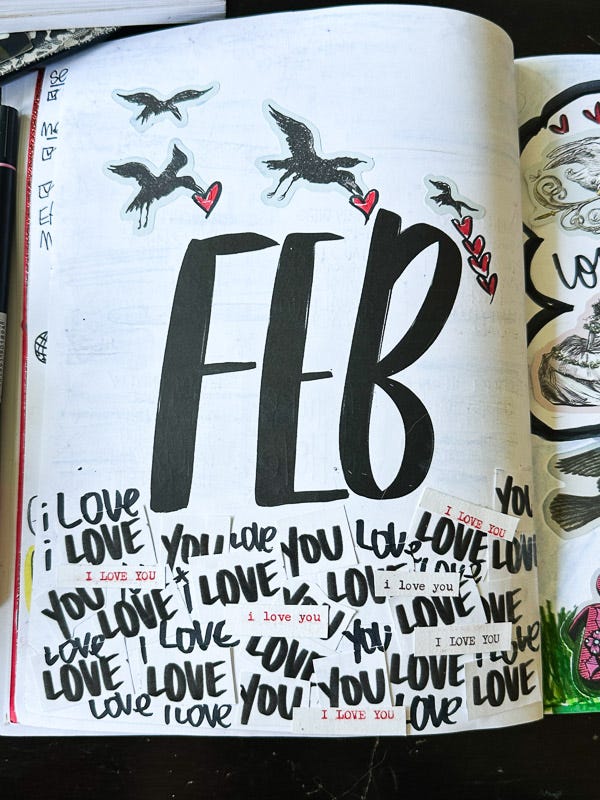 FEB
i LOVE
YOU
i LOVE
YOU
LOVE
YOU
LOVE
I LOVE YOU
LOVE
LOVE
I LOVE YOU
i LOVE
LOVE
i love you
YOU
LOVE
i love you
LOVE
LOVE
LOVE
YOU
I LOVE YOU
LOVE
LOVE
LOVE
LOVE
LOVE
LOVE
YOU
YOU
LOVE
LOVE
i LOVE
I LOVE YOU
LOVE